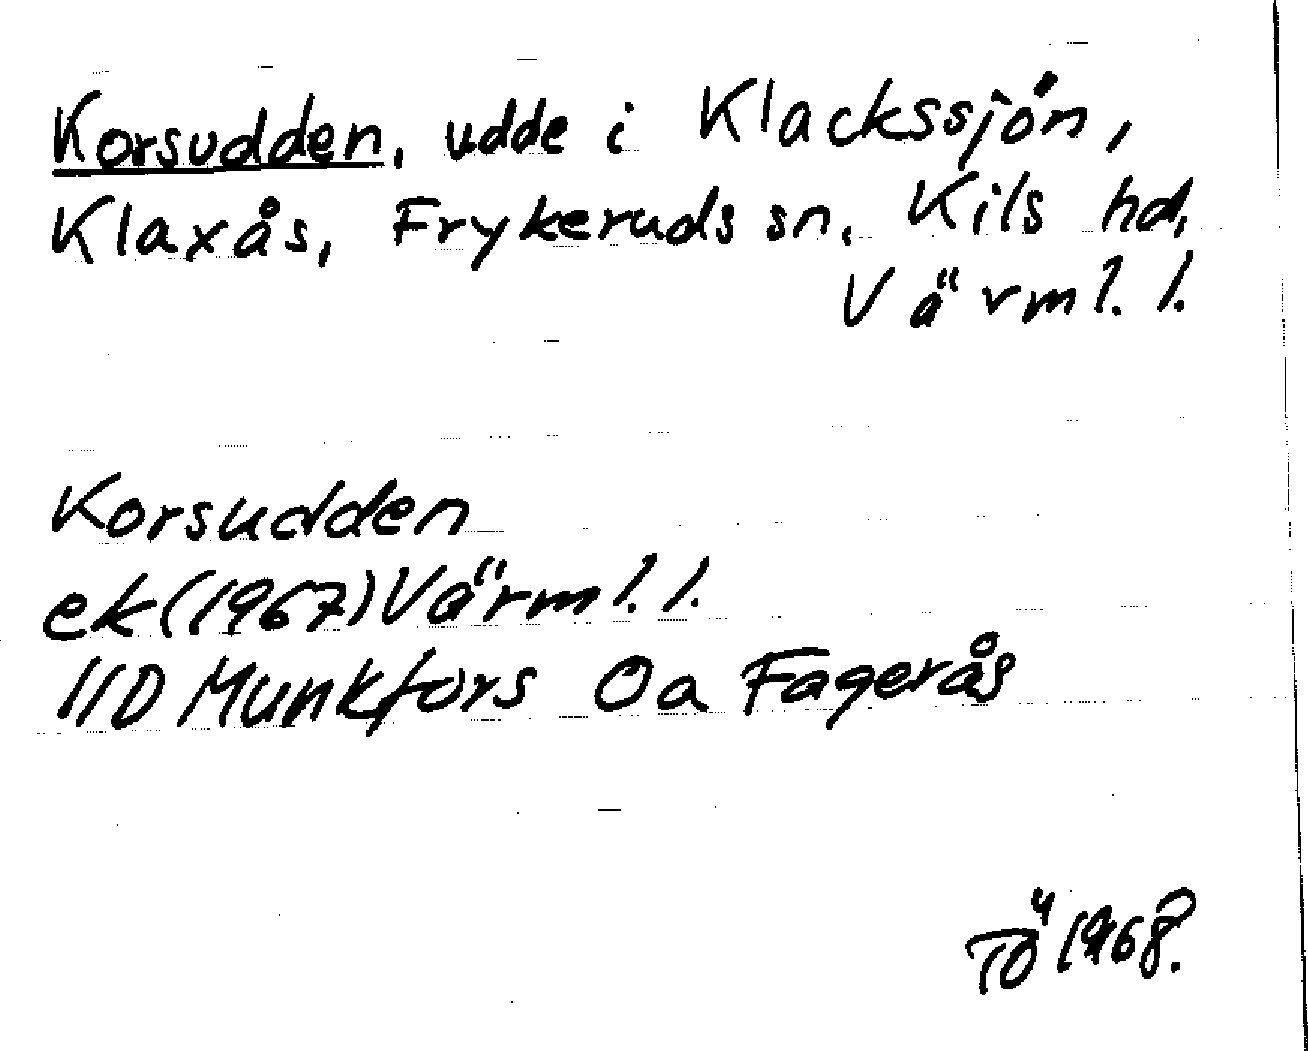 Korsudden, udde i Klackssjön,
Klaxås, Frykeruds sn, Kils hd,
Värml. l.
Korsudden
ek(1967)Värml. l.
11D Munkfors 0a Fagerås
TÖ 1968.